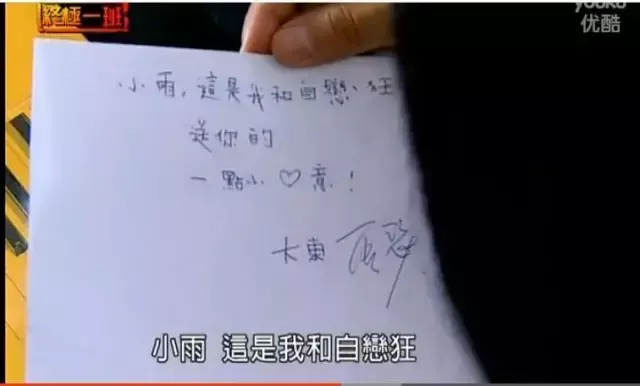 終極一班
youku
优酷
小雨,這是我和自戀狂
送你的
一點小♡意!
大東
小雨 這是我和白戀狂